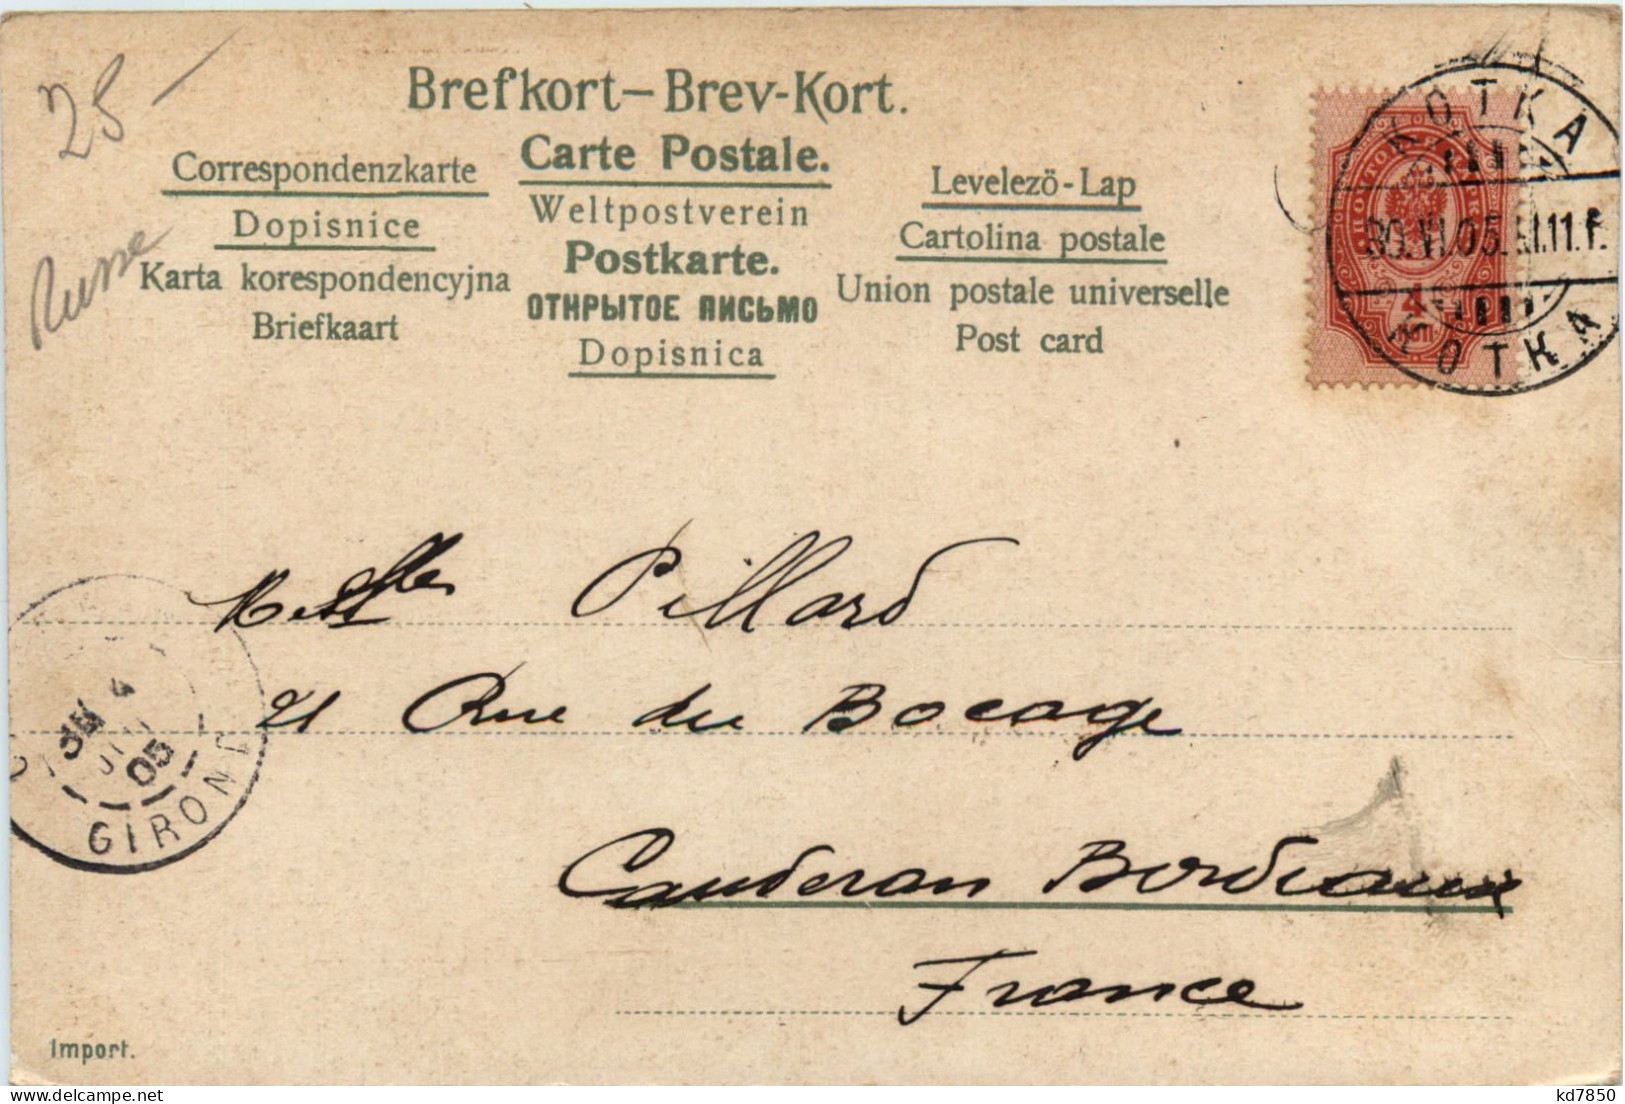 25 –
Russe
Brefkort – Brev-Kort.
Carte Postale.
Correspondenzkarte
Dopisnice
Karta korespondencyjna
Briefkaart
Weltpostverein
Postkarte.
ОТКРЫТОЕ ПИСЬМО
Dopisnica
Levelezö-Lap
Cartolina postale
Union postale universelle
Post card
KOTKA
30.VI.05. XI.11.f.
4
KOTKA
Pillard
21 Rue du Bocage
Cauderan Bordeaux
France
05
GIRONDE
Import.
kd7850